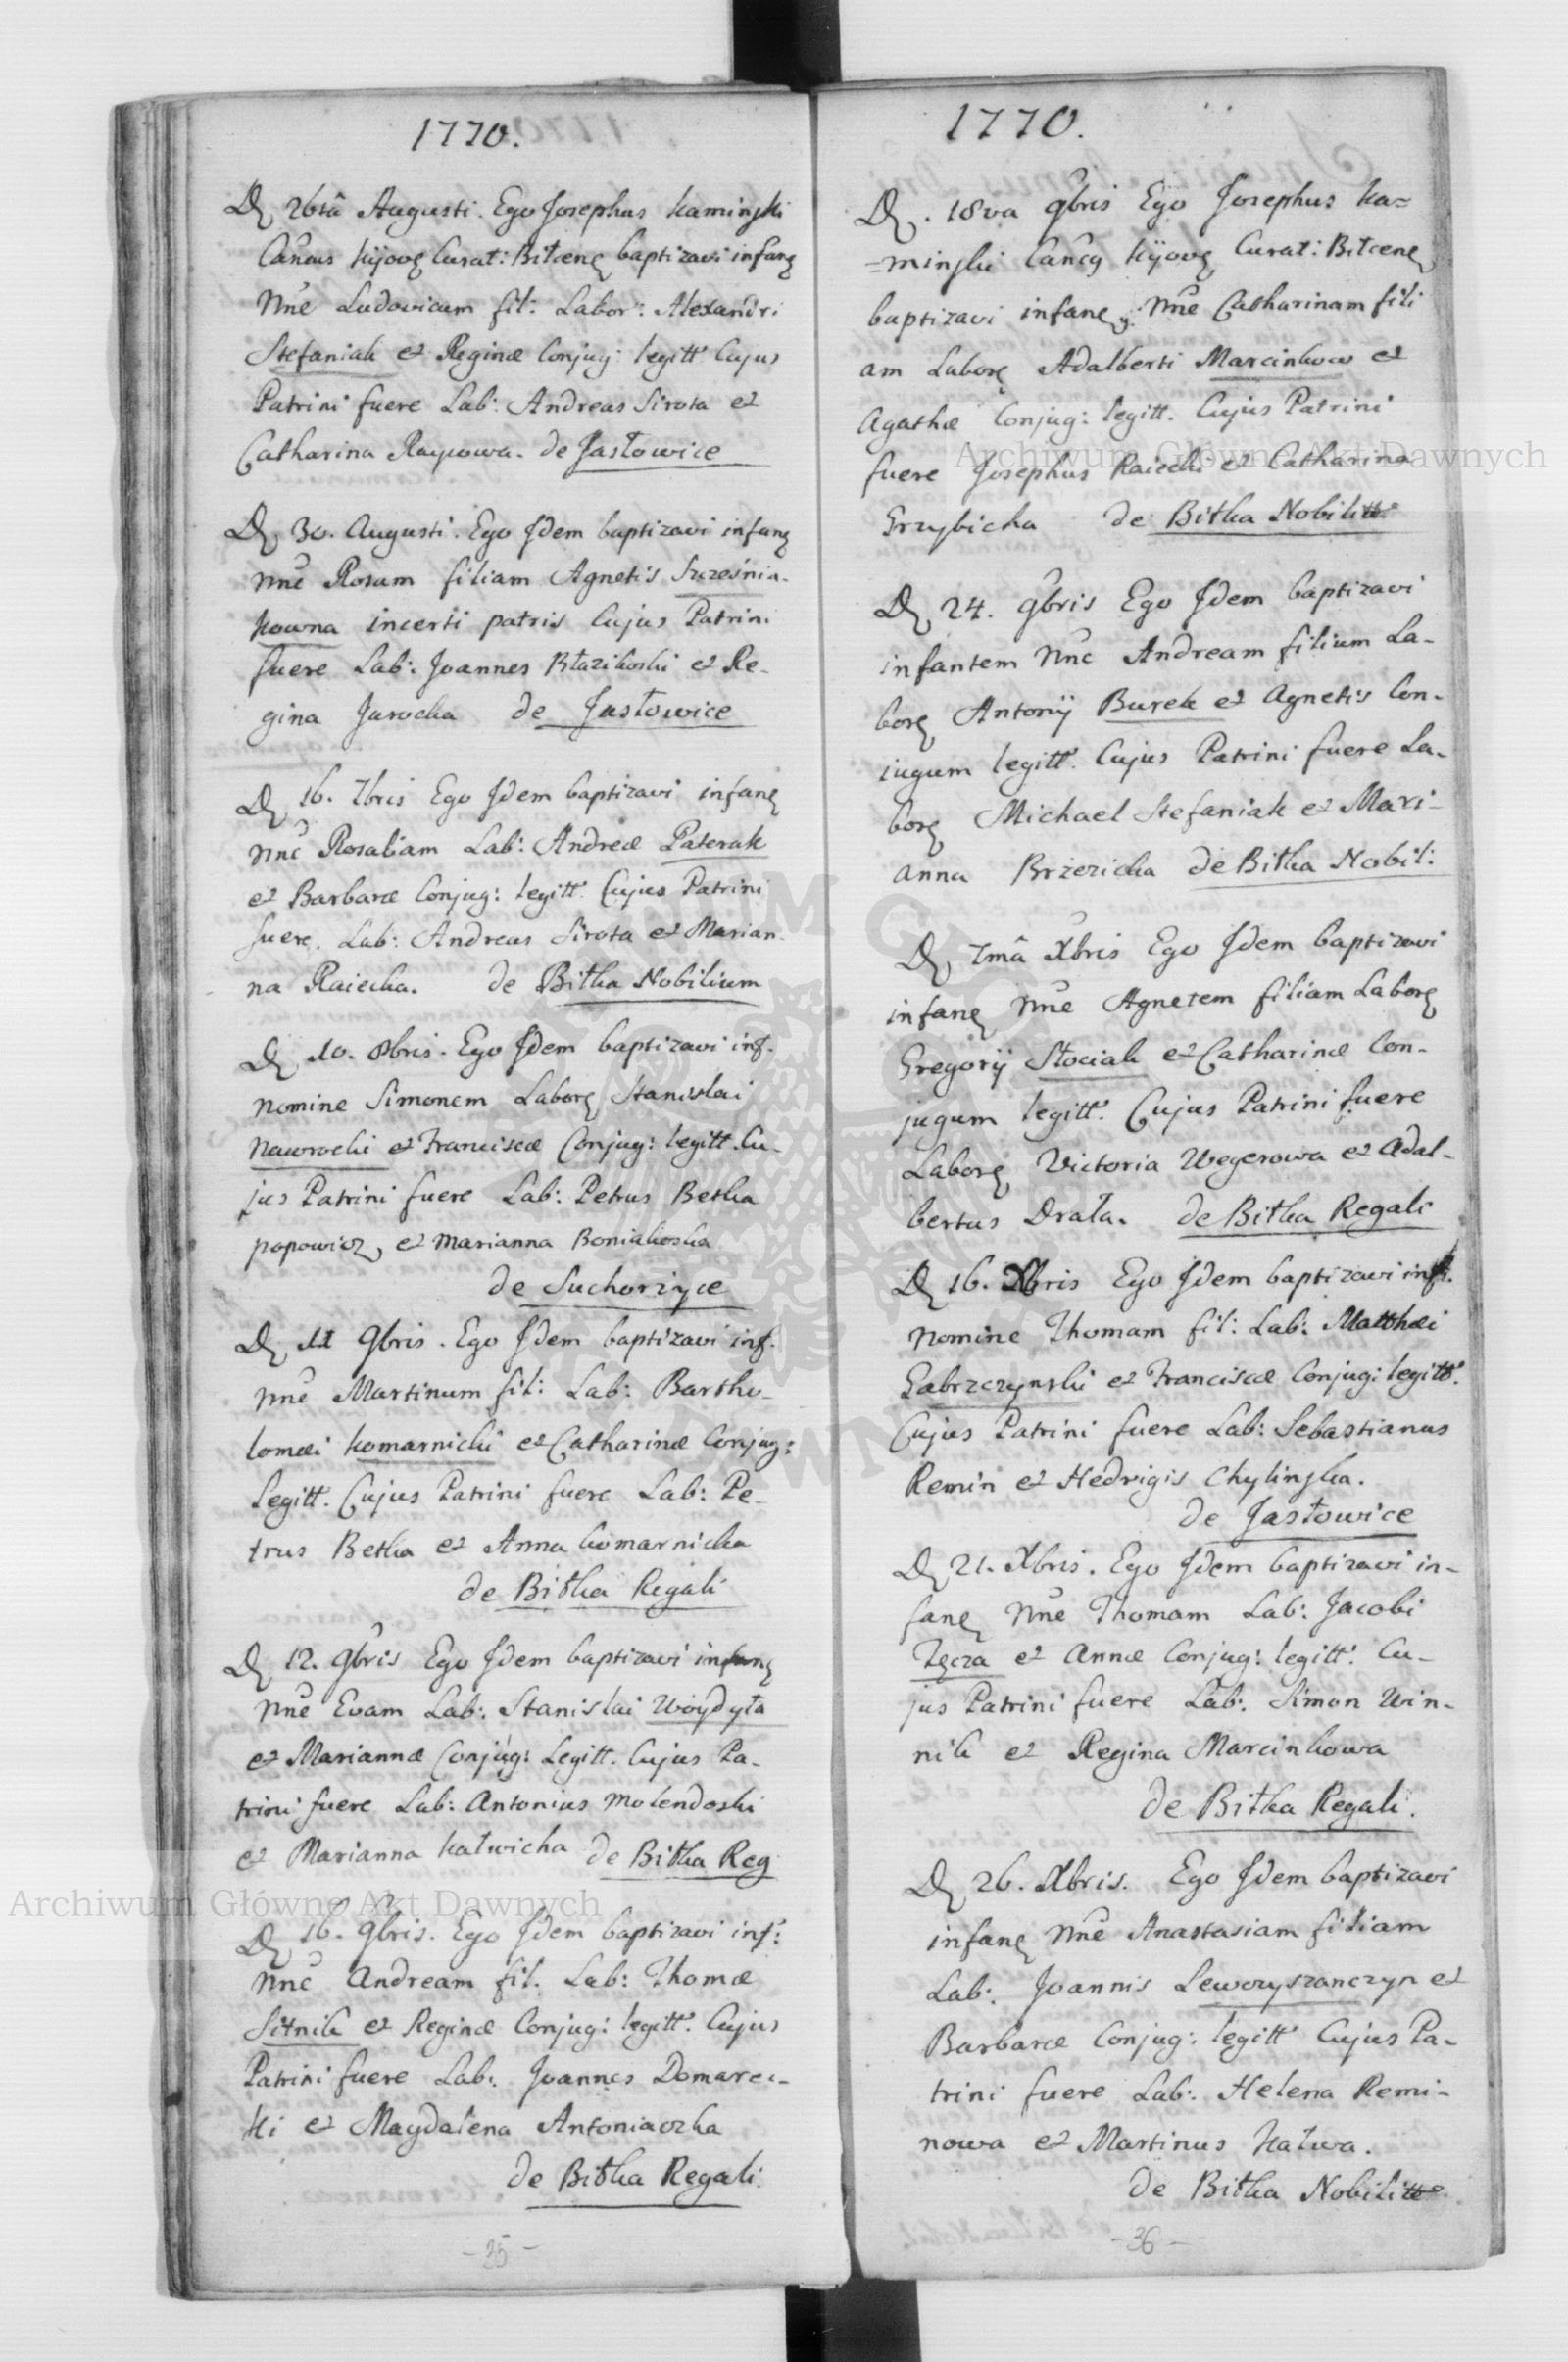 1770.
D. 26tâ Augusti. Ego Josephus Kamiński
Cancus Kijov. Curat: Biłcens. baptizavi infan.
Nne Ludovicum fil: Labor: Alexandri
Stefaniak et Reginæ Conjug: legitt. Cujus
Patrini fuere Lab: Andreas Sirota et
Catharina Raypowa. de Jastowice
D. 30. Augusti. Ego Idem baptizavi infan.
nne Rosam filiam Agnetis Szcześnia-
kowna incerti patris Cujus Patrini
fuere Lab: Joannes Błazikoski et Re-
gina Jurocka de Jastowice
D. 16. 7bris Ego Idem baptizavi infan.
nne Rosaliam Lab: Andreæ Paterak
et Barbaræ Conjug: legitt. Cujus Patrini
fuere. Lab: Andreas Sirota et Marian-
na Raiecka. de Bitka Nobilium
D. 10. 8bris. Ego Idem baptizavi inf.
nomine Simonem Labor. Stanislai
Nawrocki et Franciscæ Conjug: legitt. Cu-
jus Patrini fuere Lab: Petrus Betka
popowicz, et Marianna Boniakoska
de Suchorzyce
D. 11 9bris. Ego Idem baptizavi inf.
nne Martinum fil: Lab: Bartho-
lomæi Komarnicki et Catharinæ Conjug:
Legitt. Cujus Patrini fuere Lab: Pe-
trus Betka et Anna Komarnicka
de Bitka Regali
D. 12. 9bris Ego Idem baptizavi infan.
nne Evam Lab: Stanislai Woydyła
et Mariannæ Conjug: Legitt. Cujus Pa-
trini fuere Lab: Antonius Molendoski
et Marianna Katwicha de Bitka Reg
D. 16. 9bris. Ego Idem baptizavi inf:
nne Andream fil. Lab: Thomæ
Sitnik et Reginæ Conjug: legitt. Cujus
Patrini fuere Lab: Joannes Domare-
ki et Magdalena Antoniaczka
de Bitka Regali.
- 35 -
1770.
D. 18va 9bris Ego Josephus Ka=
=minski Cancus Kijov. Curat: Bitcen.
baptizavi infan. Nne Catharinam fili
am Labor. Adalberti Marcinkow et
Agathæ Conjug: legitt. Cujus Patrini
fuere Josephus Raiecki et Catharina
Grzybicha de Bitka Nobilitt.
D. 24. 9bris Ego Idem baptizavi
infantem nne Andream filium La-
bor. Antonij Burek et Agnetis Con-
iugum legitt. Cujus Patrini fuere La-
bor. Michael Stefaniak et Mari-
anna Brzezicka de Bitka Nobil:
D. 7mâ Xbris Ego Idem baptizavi
infan. Nne Agnetem filiam Labor.
Gregorij Stociak et Catharinæ Con-
jugum legitt. Cujus Patrini fuere
Labor. Victoria Wegerowa et Adal-
bertus Drała. de Bitka Regali
D. 16. Xbris Ego Idem baptizavi inf.
nomine Thomam fil: Lab: Matthæi
Gabrzczynski et Franciscæ Conjug: legitt.
Cujus Patrini fuere Lab: Sebastianus
Remin et Hedvigis Chylinska.
de Jastowice
D. 21. Xbris. Ego Idem baptizavi in-
fan. Nne Thomam Lab: Jacobi
Tęcza et Annæ Conjug: legitt. Cu-
jus Patrini fuere Lab: Simon Win-
nik et Regina Marcinkowa
de Bitka Regali.
D. 26. Xbris. Ego Idem baptizavi
infan. Nne Anastasiam filiam
Lab: Joannis Lewczyszanczyn et
Barbaræ Conjug: legitt Cujus Pa-
trini fuere Lab: Helena Remi-
nowa et Martinus Katwa.
de Bitka Nobilitt
- 36 -
Archiwum Główne Akt Dawnych
Archiwum Główne Akt Dawnych